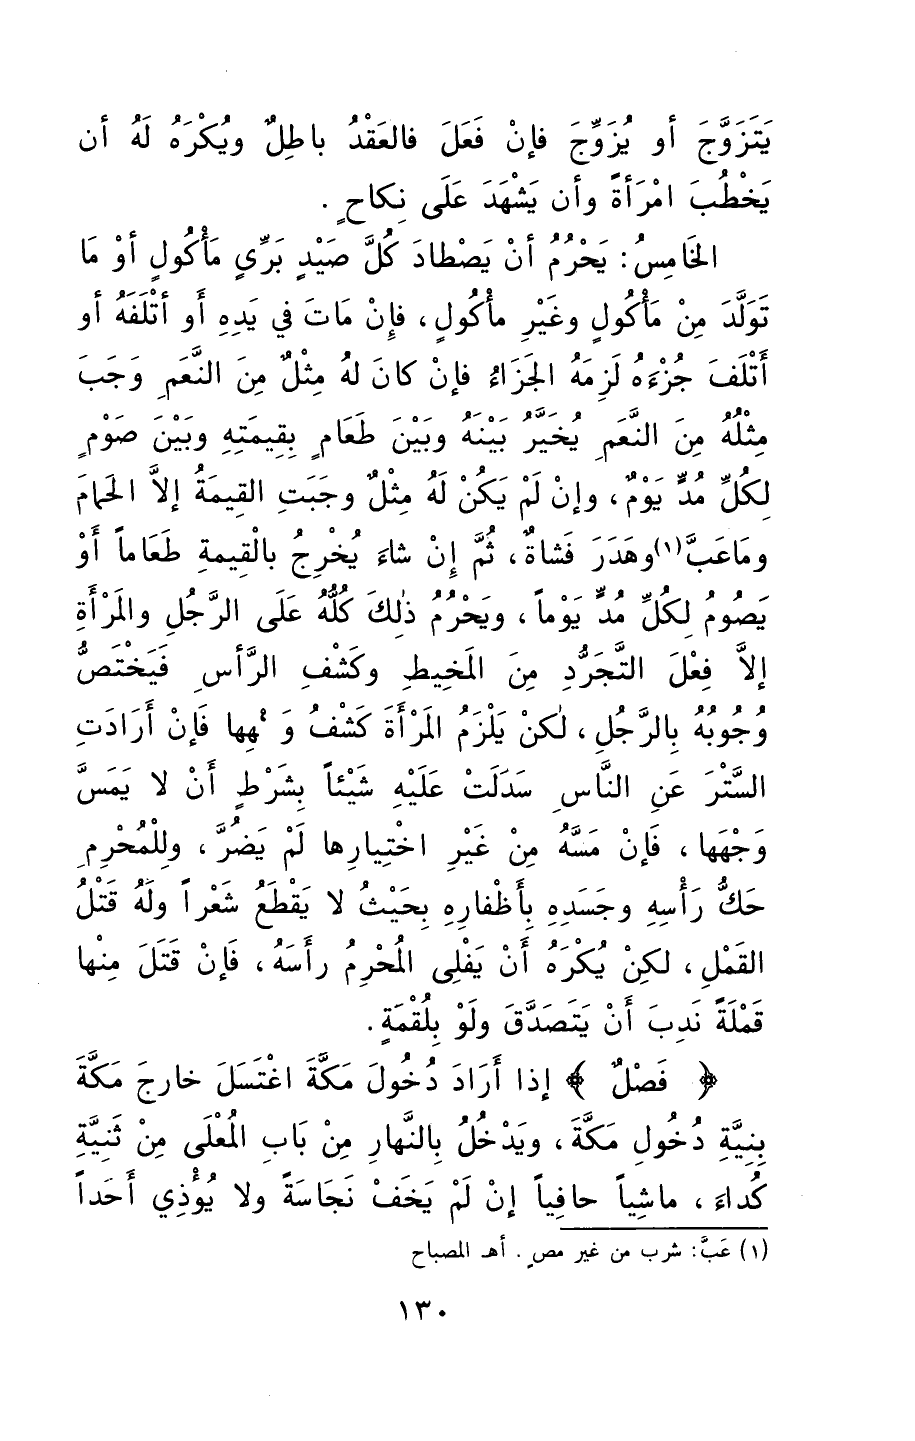 يَتَزَوَّجَ أو يُزَوِّجَ فإنْ فَعَلَ فالعَقْدُ باطِلٌ ويُكْرَهُ لَهُ أن
يَخْطُبَ امْرَأةً وأن يَشْهَدَ عَلَى نِكاحٍ .
الخَامِسُ: يَحْرُمُ أنْ يَصْطادَ كُلَّ صَيْدٍ بَرِّيٍ مَأْكُولٍ أوْ مَا
تَوَلَّدَ مِنْ مَأْكُولٍ وغَيْرِ مأْكُولٍ، فإِنْ مَاتَ في يَدِهِ أَو أتْلَفَهُ أو
أَتْلَفَ جُزْءَهُ لَزِمَهُ الجَزَاءُ فإنْ كانَ لهُ مِثْلٌ مِنَ النَّعَمِ وَجَبَ
مِثْلُهُ مِنَ النَّعَمِ يُخَيَّرُ بَيْنَهُ وبَيْنَ طَعَامٍ بِقِيمَتِهِ وبَيْنَ صَوْمٍ
لِكُلِّ مُدٍّ يَوْمٌ، وإنْ لَمْ يَكُنْ لَهُ مِثْلٌ وجَبَتِ القِيمَةُ إلاَّ الحَمامَ
ومَاعَبَّ(١)وهَدَرَ فَشاةٌ، ثُمَّ إِنْ شاءَ يُخْرِجُ بالْقِيمةِ طَعَاماً أَوْ
يَصُومُ لِكُلِّ مُدٍّ يَوْماً، ويَحْرُمُ ذٰلكَ كُلُّهُ عَلَى الرَّجُلِ والمَرْأَةِ
إلاَّ فِعْلَ التَّجَرُّدِ مِنَ المَخِيطِ وكَشْفِ الرَّأسِ فَيَخْتَصُّ
وُجُوبُهُ بِالرَّجُلِ، لٰكنْ يَلْزَمُ المَرْأَةَ كَشْفُ وَ جْهِها فَإنْ أَرَادَتِ
السَّتْرَ عَنِ النَّاسِ سَدَلَتْ عَلَيْهِ شَيْئاً بِشَرْطٍ أَنْ لا يَمَسَّ
وَجْهَها، فَإنْ مَسَّهُ مِنْ غَيْرِ اخْتِيارِها لَمْ يَضُرَّ، ولِلْمُحْرِمِ
حَكُّ رَأْسِهِ وجَسَدِهِ بِأَظْفارِهِ بِحَيْثُ لا يَقْطَعُ شَعْراً ولَهُ قَتْلُ
القَمْلِ، لكِنْ يُكْرَهُ أَنْ يَفْلِى المُحْرِمُ رأَسَهُ، فَإنْ قَتَلَ مِنْها
قَمْلَةً نَدِبَ أَنْ يَتَصَدَّقَ ولَوْ بِلُقْمَةٍ.
﴿ فَصْلٌ ﴾ إذا أَرَادَ دُخُولَ مَكَّةَ اغْتَسَلَ خارجَ مَكَّةَ
بِنِيَّةِ دُخُولِ مَكَّةَ، ويَدْخُلُ بالنَّهارِ مِنْ بَابِ المُعْلَى مِنْ ثَنِيَّةِ
كُداءَ، ماشِياً حافِياً إنْ لَمْ يَخَفْ نَجَاسَةً ولا يُؤْذِي أَحَداً
(١) عَبَّ: شرب من غير مصٍ . أهـ المصباح
١٣٠